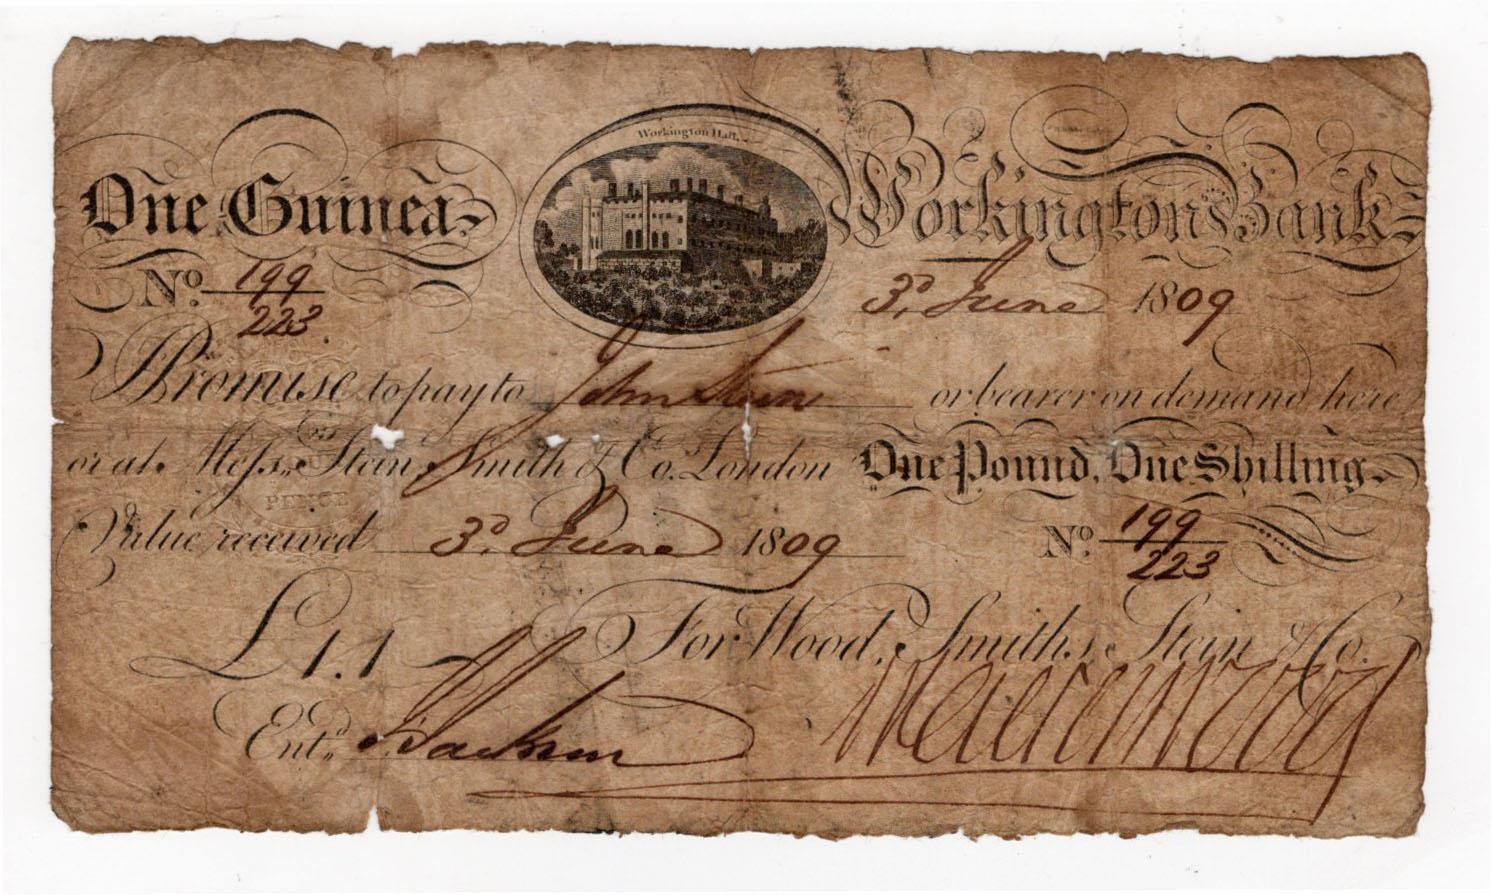 Workington Hall.
One Guinea
Workington Bank
No. 199
223
3d. June 1809
Promise to pay to John Stein or bearer on demand here
or at Messrs. Stein, Smith & Co. London One Pound, One Shilling
PENCE
Value received 3d. June 1809
No. 199
223
£1.1
For Wood, Smiths, Stein & Co.
Entd. Jackson